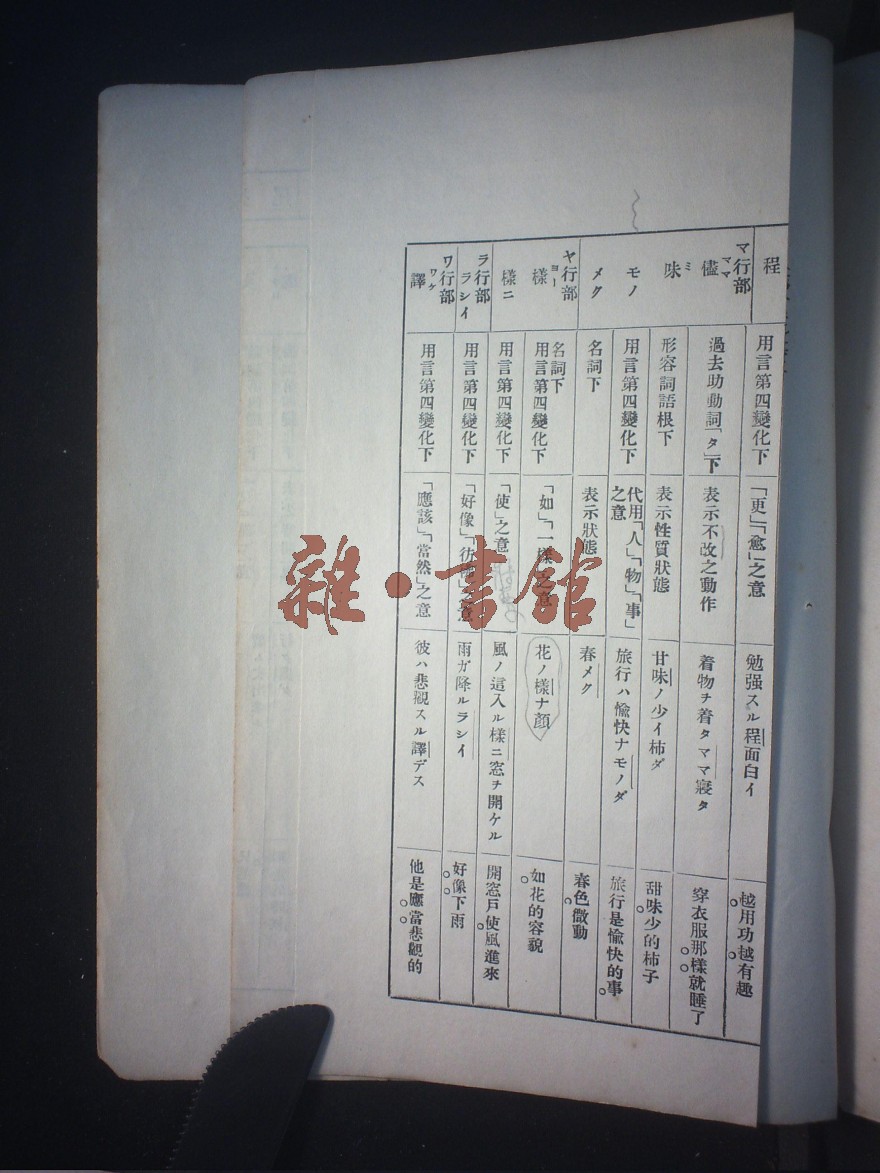 程
用言第四變化下
「更」「愈」之意
勉强スル程面白イ
越用功越有趣
マ行部
儘
ママ
過去助動詞「タ」下
表示不改之動作
着物チ着タママ寢タ
穿衣服那樣就睡了
味
ミ
形容詞語根下
表示性質狀態
甘味ノ少イ柿ダ
甜味少的柿子
モノ
用言第四變化下
代用「人」「物」「事」
之意
旅行ハ愉快ナモノダ
旅行是愉快的事
メク
名詞下
表示狀態
春メク
春色微動
ヤ行部
樣
ヨー
名詞下
用言第四變化下
「如」「一樣」之意
花ノ樣ナ顔
如花的容貌
樣ニ
用言第四變化下
「使」之意
風ノ這入ル樣ニ窓チ開ケル
開窓戸使風進來
ラ行部
ラシイ
用言第四變化下
「好像」「彷彿」之意
雨ガ降ルラシイ
好像下雨
ワ行部
譯
ワケ
用言第四變化下
「應該」「當然」之意
彼ハ悲觀スル譯デス
他是應當悲觀的
雜·書館